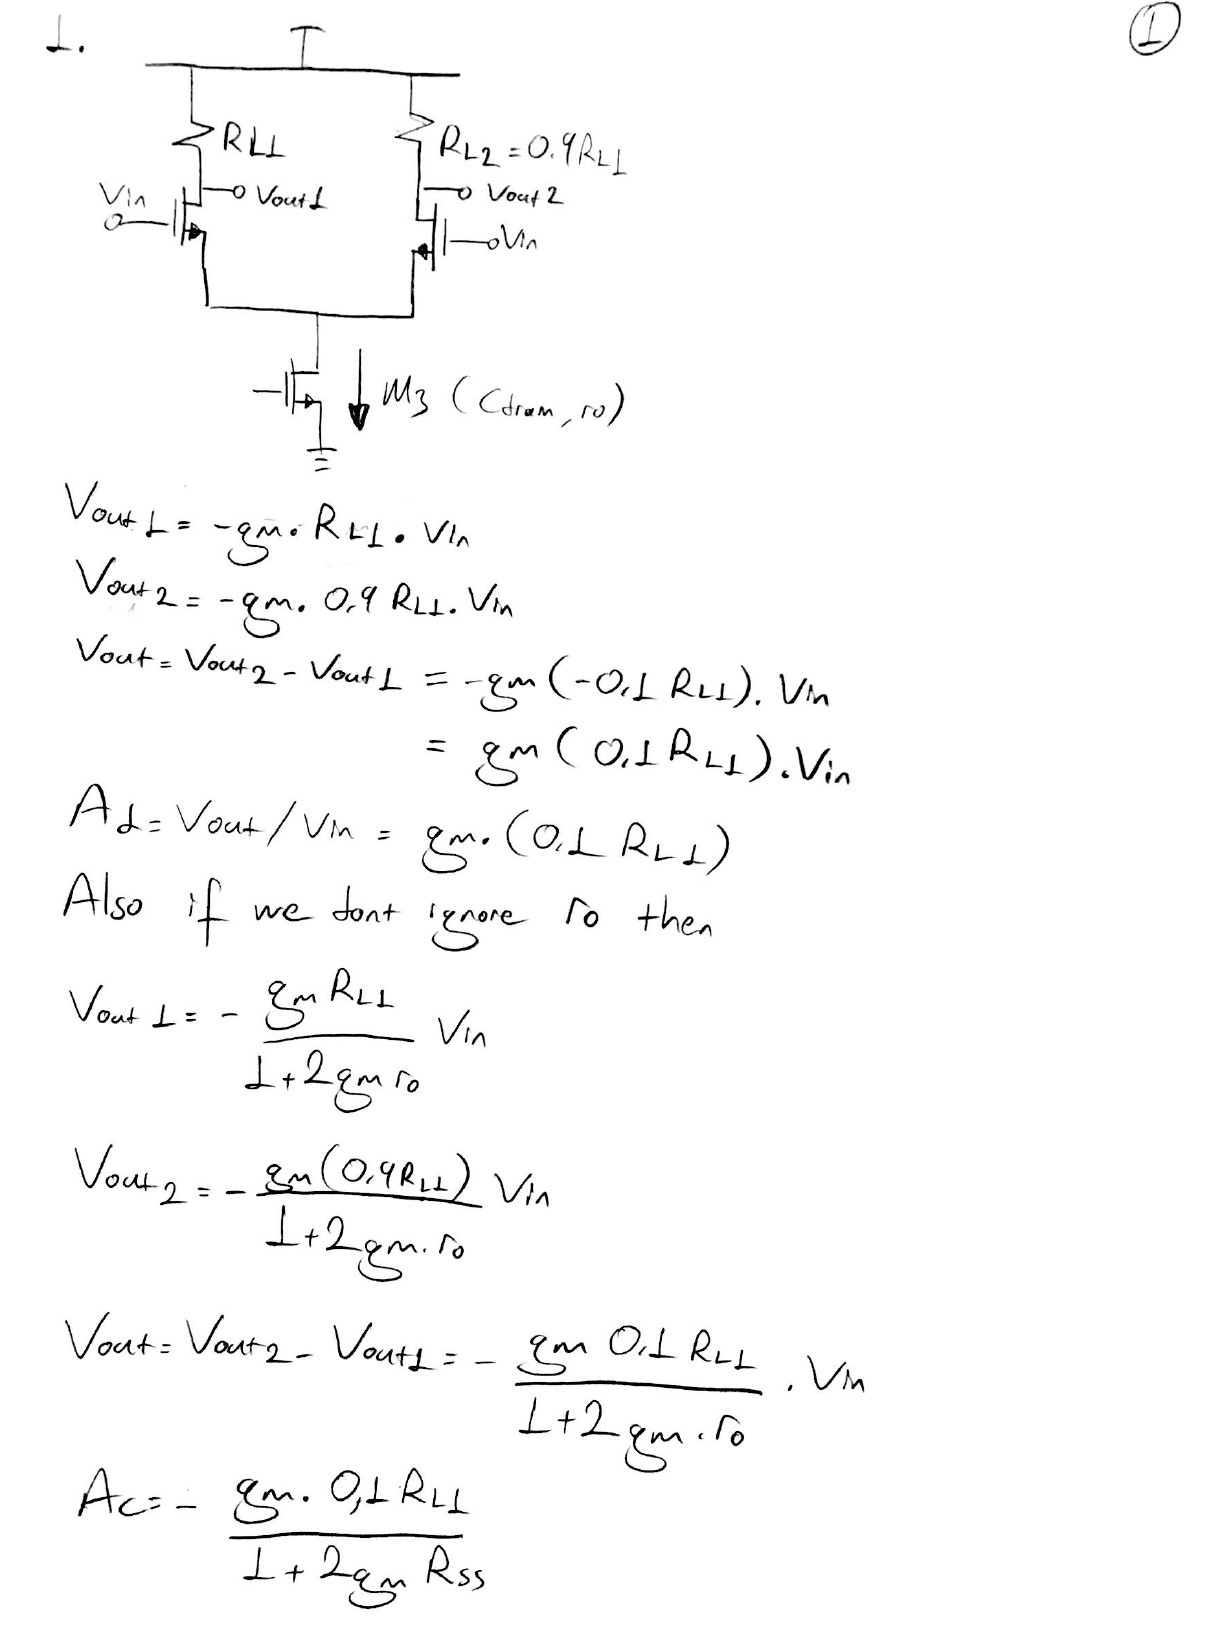 1.
①
RL1
RL2 = 0.9RL1
Vin
Vout1
Vout2
Vin
M3 (Cdram, ro)
Vout1 = -gm. RL1. Vin
Vout2 = -gm. 0,9 RL1. Vin
Vout = Vout2 - Vout1 = -gm (-0,1 RL1). Vin
= gm (0,1 RL1). Vin
Ad = Vout/Vin = gm. (0,1 RL1)
Also if we dont ignore ro then
Vout1 = - gm RL1 / 1+2gm ro Vin
Vout2 = - gm (0,9RL1) / 1+2gm. ro Vin
Vout = Vout2 - Vout1 = - gm 0,1 RL1 / 1+2 gm. ro . Vin
Ac = - gm. 0,1 RL1 / 1 + 2gm Rss